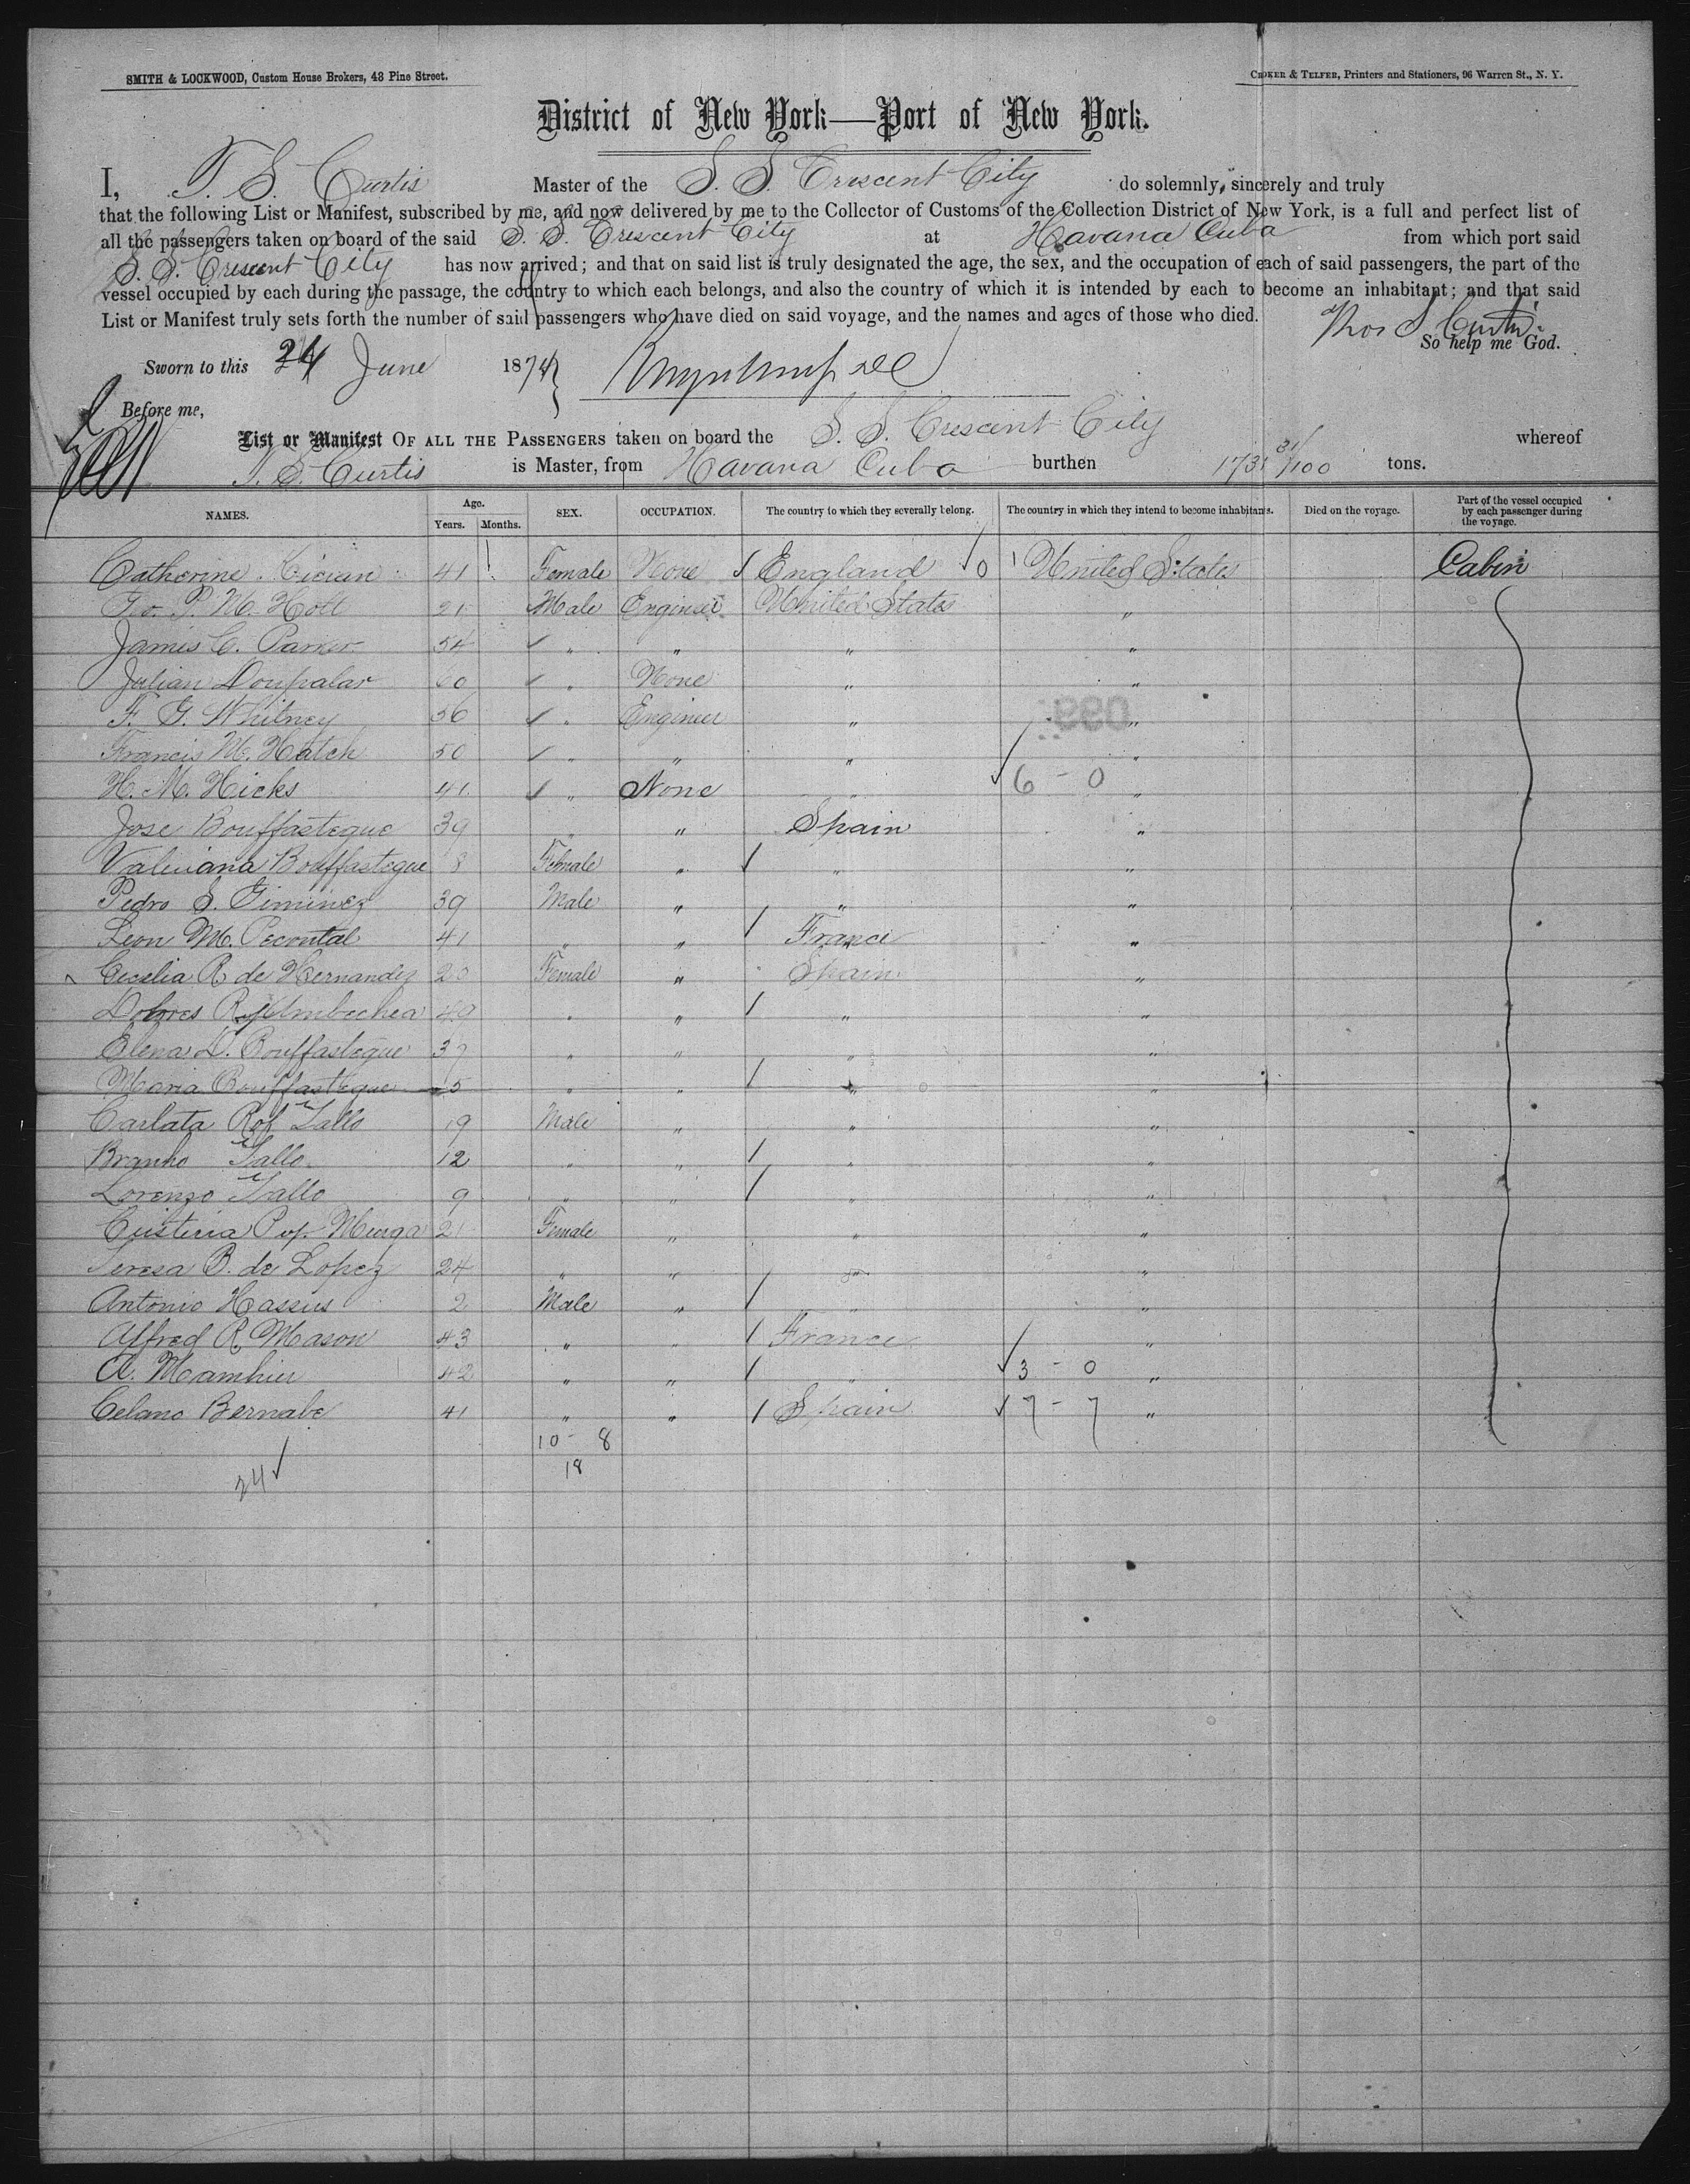 SMITH & LOCKWOOD, Custom House Brokers, 43 Pine Street.
CROKER & TELFER, Printers and Stationers, 96 Warren St., N. Y.
District of New York—Port of New York.
I, T. S. Curtis Master of the S. S. Crescent City do solemnly, sincerely and truly
that the following List or Manifest, subscribed by me, and now delivered by me to the Collector of Customs of the Collection District of New York, is a full and perfect list of
all the passengers taken on board of the said S. S. Crescent City at Havana Cuba from which port said
S. S. Crescent City has now arrived; and that on said list is truly designated the age, the sex, and the occupation of each of said passengers, the part of the
vessel occupied by each during the passage, the country to which each belongs, and also the country of which it is intended by each to become an inhabitant; and that said
List or Manifest truly sets forth the number of said passengers who have died on said voyage, and the names and ages of those who died.
Thos S Curtis
So help me God.
Sworn to this 24 June 1874
Before me,
List or Manifest OF ALL THE PASSENGERS taken on board the S. S. Crescent City whereof
T. S. Curtis is Master, from Havana Cuba burthen 1731 31/100 tons.
NAMES. Age. Years. Months. SEX. OCCUPATION. The country to which they severally belong. The country in which they intend to become inhabitants. Died on the voyage. Part of the vessel occupied by each passenger during the voyage.
Catherine 41 Female None England 0 United States Cabin
P. M. Holt 21 Male Engineer United States "
James C. Parker 54 " " " "
Julian 60 " None " "
F. G. Whitney 36 " Engineer " "
Francis M. Hatch 50 " " " "
H. M. Hicks 41 " None " 6 - 0 "
Jose Bouffasteque 39 " " Spain "
Bouffasteque 8 Female " " "
Pedro S. Giminez 39 Male " " "
Leon M. Pecontal 41 " " France "
Cecelia R de Hernandez Female " Spain "
Dolores " " " "
Elena D. Bouffasteque " " " "
Maria Bouffasteque 5 " " " "
Carlata 19 Male " " "
12 " " " "
Lorenzo 9 " " " "
Murga 21 Female " " "
Teresa B. de Lopez 24 " " " "
Antonio Hassus 2 Male " " "
Alfred R Mason 43 " " France "
A. 42 " " " 3 - 0 "
Celano Bernabe 41 " " Spain 7 - 7 "
10 - 8
18
24